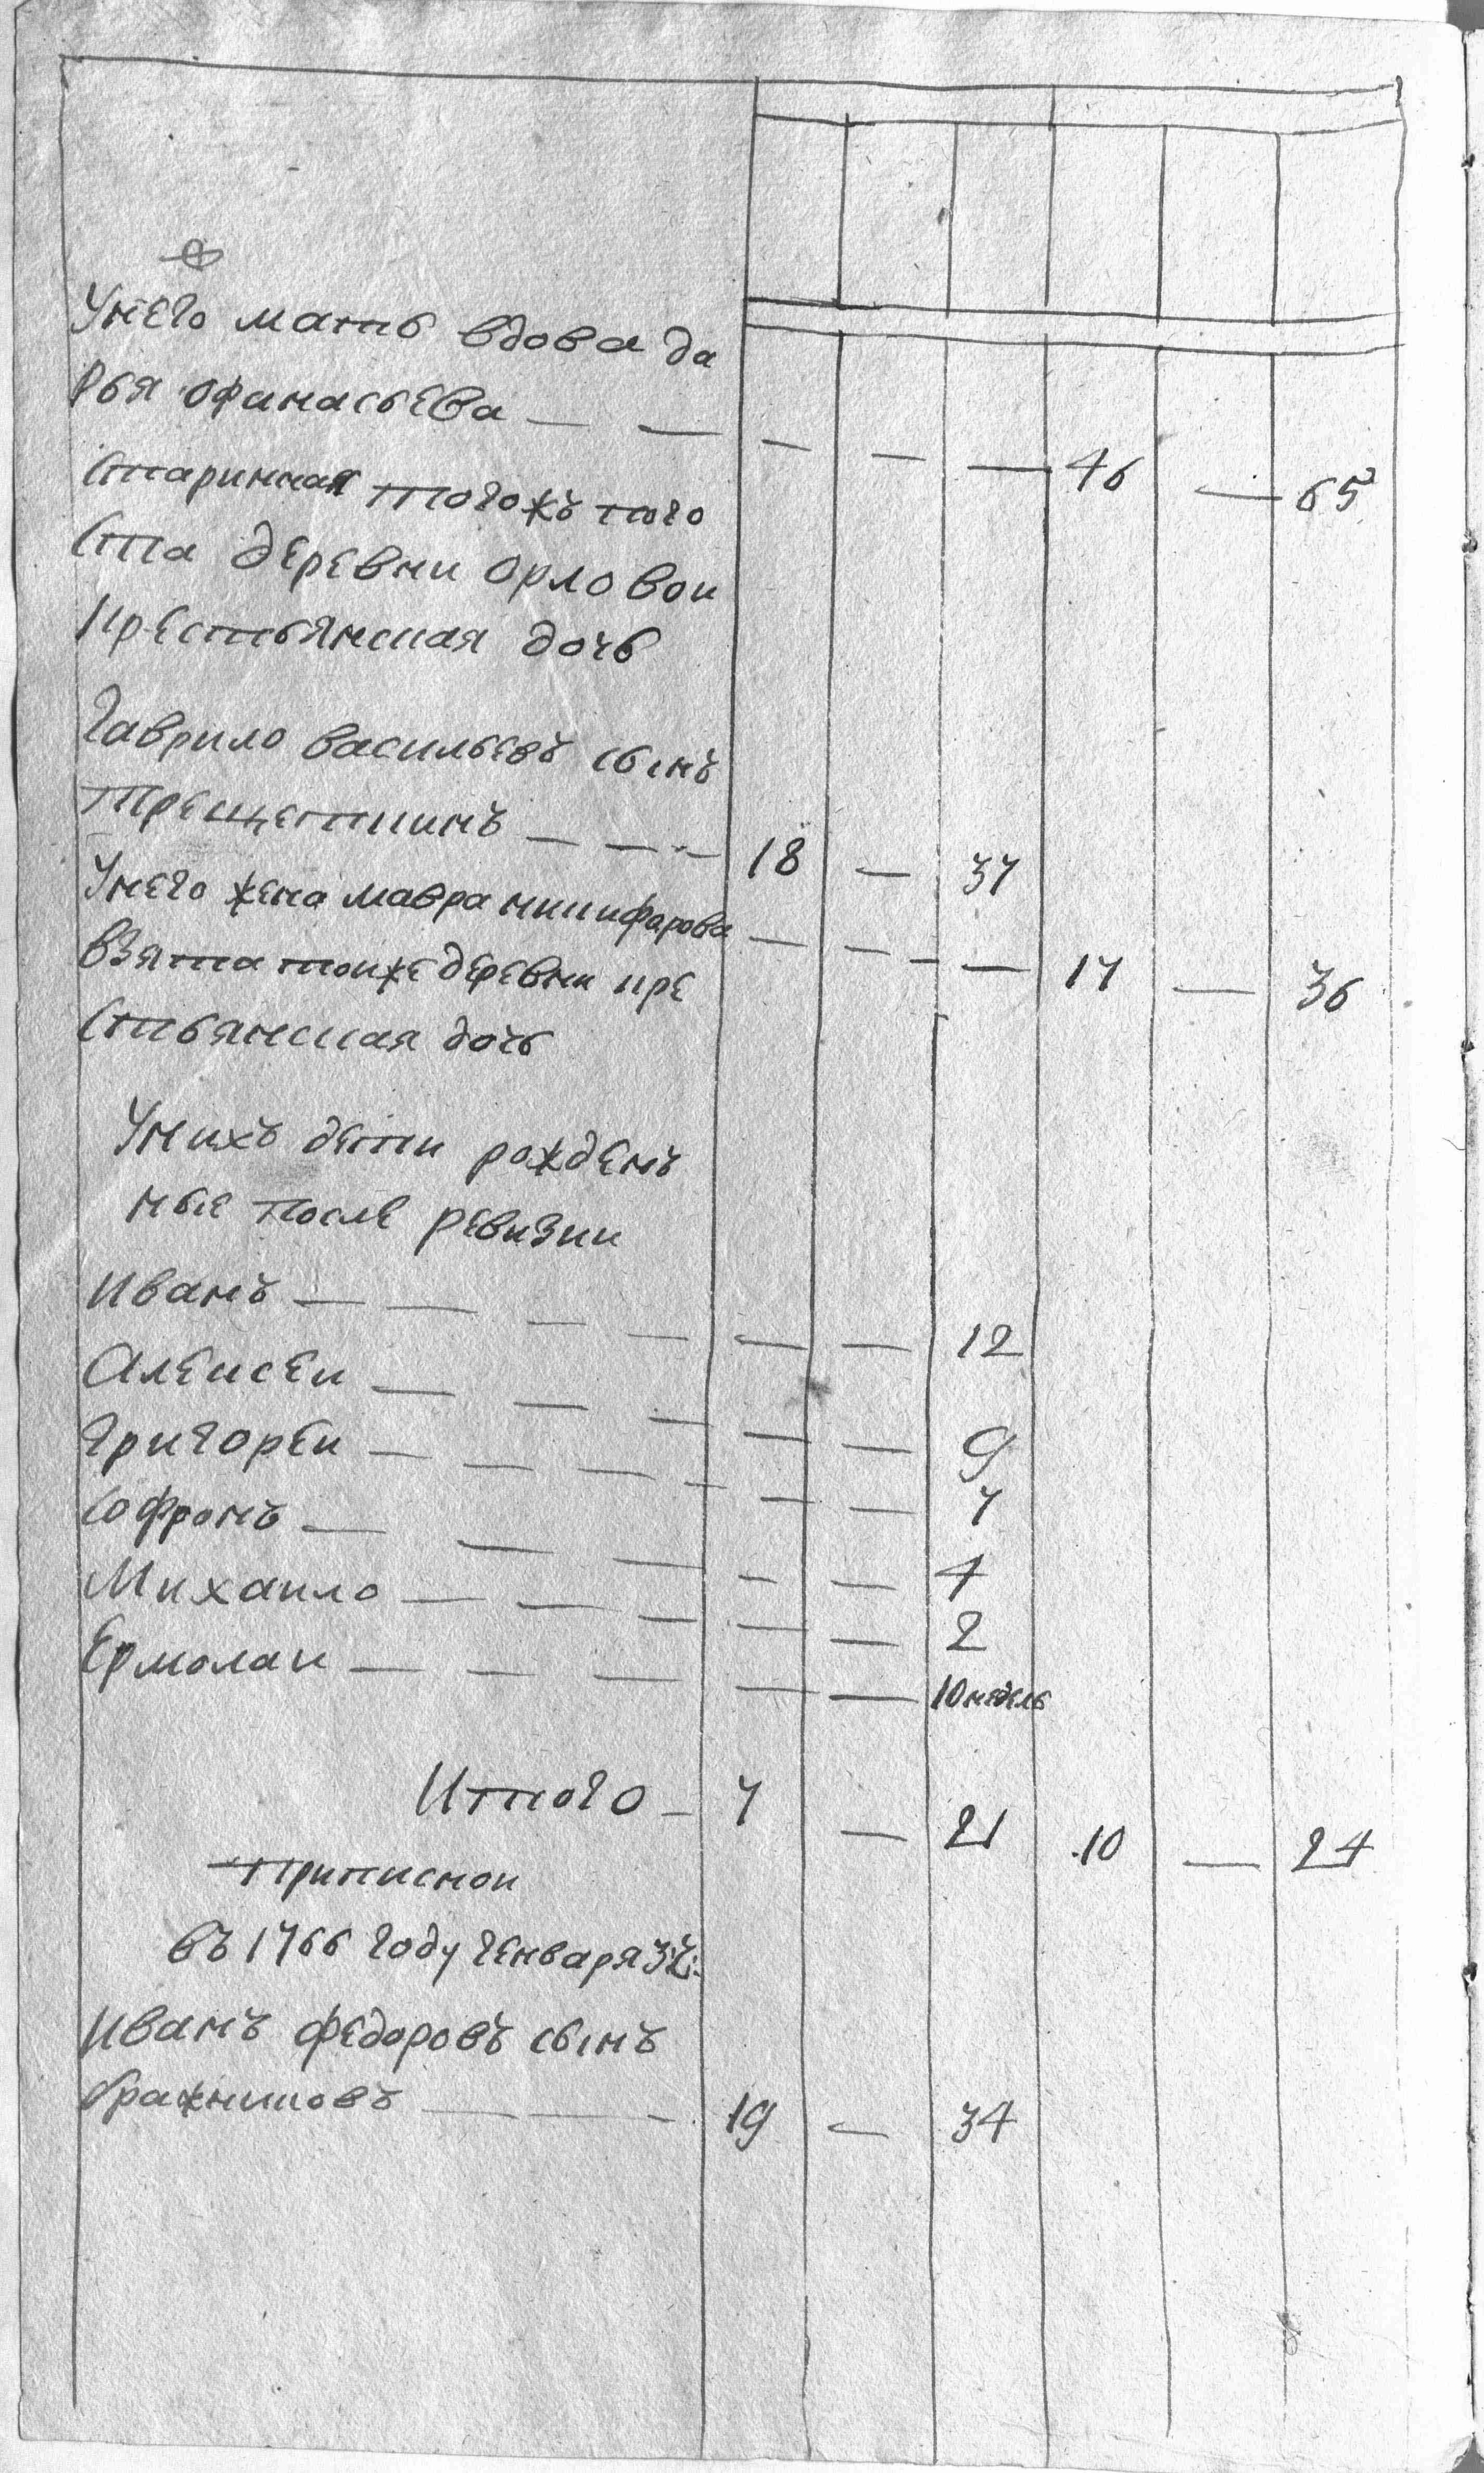 Унего мать вдова да
рья офанасьева — — — — — 46 — 65
старинная тогожъ пого
ста деревни орловои
крестьянская дочь
Гаврило васильевъ сынъ
трещеткинъ — — — 18 — 37
Унего жена мавра никифарова — — — — 17 — 36
взята тоиже деревни кре
стьянская дочь
Унихъ дети рожденъ
ные после ревизии
Иванъ — — — — — — 12
Алексеи — — — — — 9
Григореи — — — — — — 7
Софронъ — — — — — 4
Михаило — — — — — 2
Ермолаи — — — — — 10 недель
Итого — 7 — 21 10 — 24
Приписнои
въ 1766 году генваря 3 ч:
Иванъ федоровъ сынъ
бражниковъ — — — 19 — 34